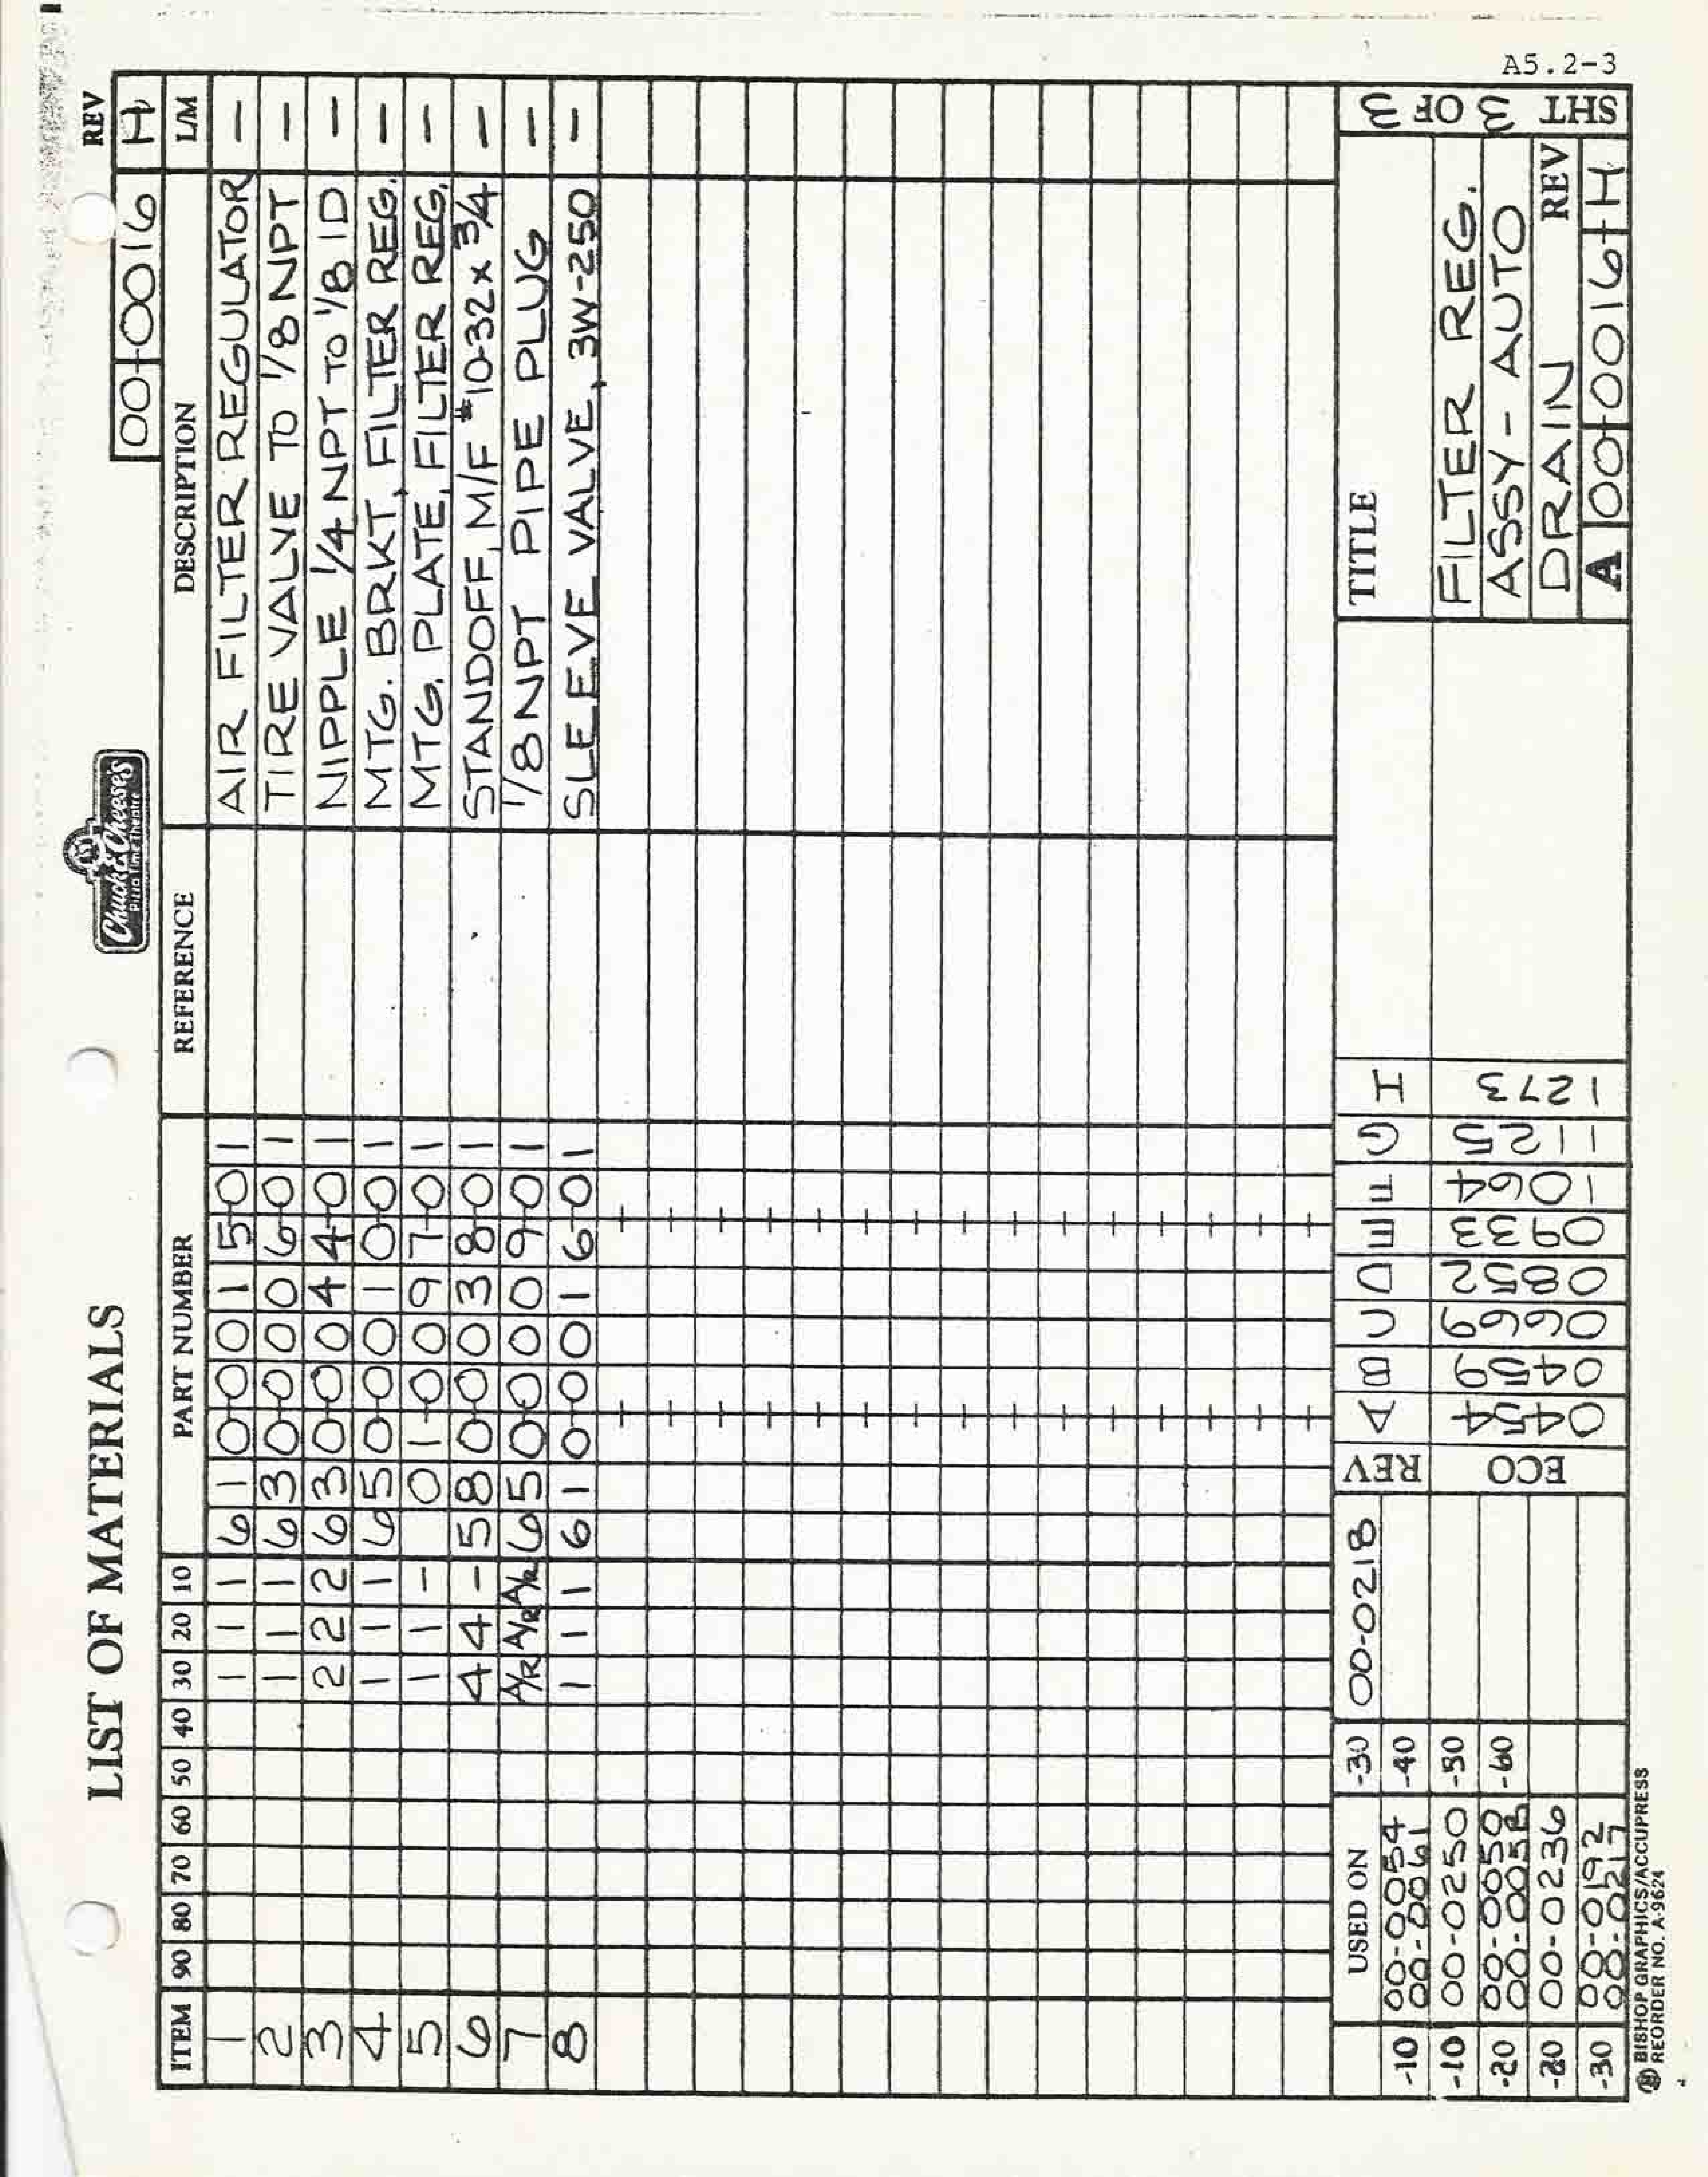 A5.2-3
LIST OF MATERIALS
Chuck E. Cheese's
Pizza Time Theatre
REV
00-0016 H
ITEM 90 80 70 60 50 40 30 20 10 PART NUMBER REFERENCE DESCRIPTION L/M
1 1 1 1 61-0001-5-01 AIR FILTER REGULATOR —
2 1 1 1 63-0000-6-01 TIRE VALVE TO 1/8 NPT —
3 2 2 2 63-0004-4-01 NIPPLE 1/4 NPT TO 1/8 ID —
4 1 1 1 65-0001-0-01 MTG. BRKT, FILTER REG. —
5 1 1 - 01-0009-7-01 MTG. PLATE, FILTER REG. —
6 4 4 - 58-0003-8-01 STANDOFF, M/F #10-32 x 3/4 —
7 A/R A/R A/R 65-0000-9-01 1/8 NPT PIPE PLUG —
8 1 1 1 61-0001-6-01 SLEEVE VALVE, 3W-250 —
USED ON
-10 00-0054
00-0061
-10 00-0250
-20 00-0050
00-0058
-20 00-0236
-30 00-0192
00-0217
-30 00-0218
-40
-50
-60
REV A B C D E F G H
ECO 0454 0459 0669 0852 0933 1064 1125 1273
TITLE
FILTER REG.
ASSY - AUTO
DRAIN REV
A 00-0016-H
SHT 3 OF 3
BISHOP GRAPHICS/ACCUPRESS
REORDER NO. A-9624